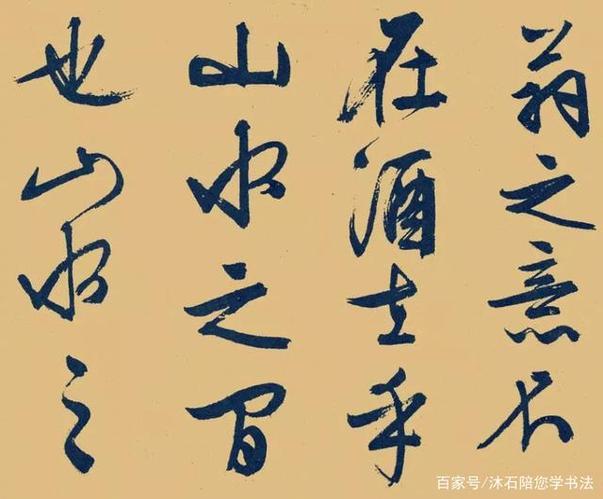 翁之意不
在酒在乎
山水之间
也山水之
百家号/沐石陪您学书法